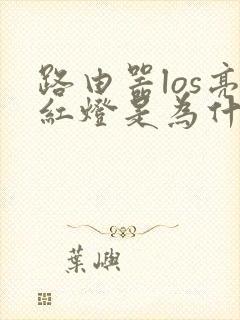 路由器los亮
紅燈是為什
葉嶼